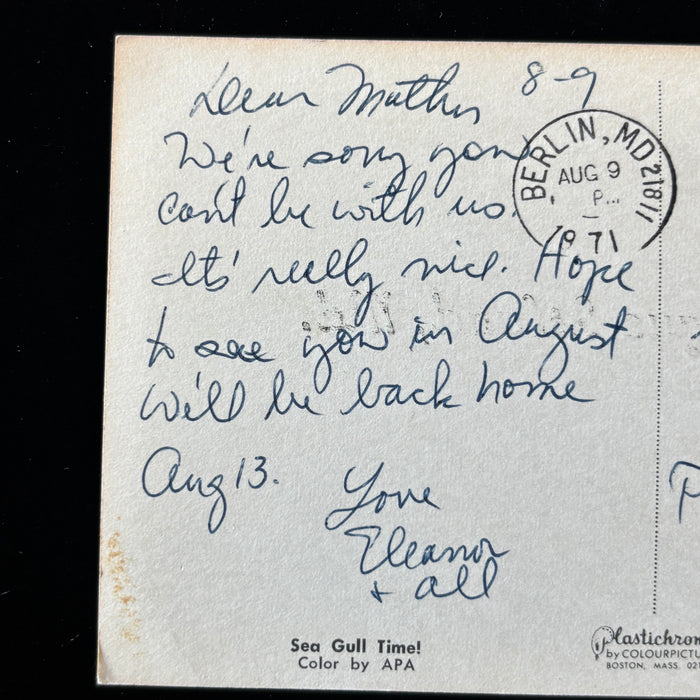 Dear Mother 8-9
We're sorry you
can't be with us.
Its' really nice. Hope
to see you in August
We'll be back home
Aug 13. Love
Eleanor
+ all
BERLIN, MD 21811
AUG 9
P...
1971
Sea Gull Time!
Color by APA
Plastichrom
by COLOURPICTU
BOSTON, MASS. 02